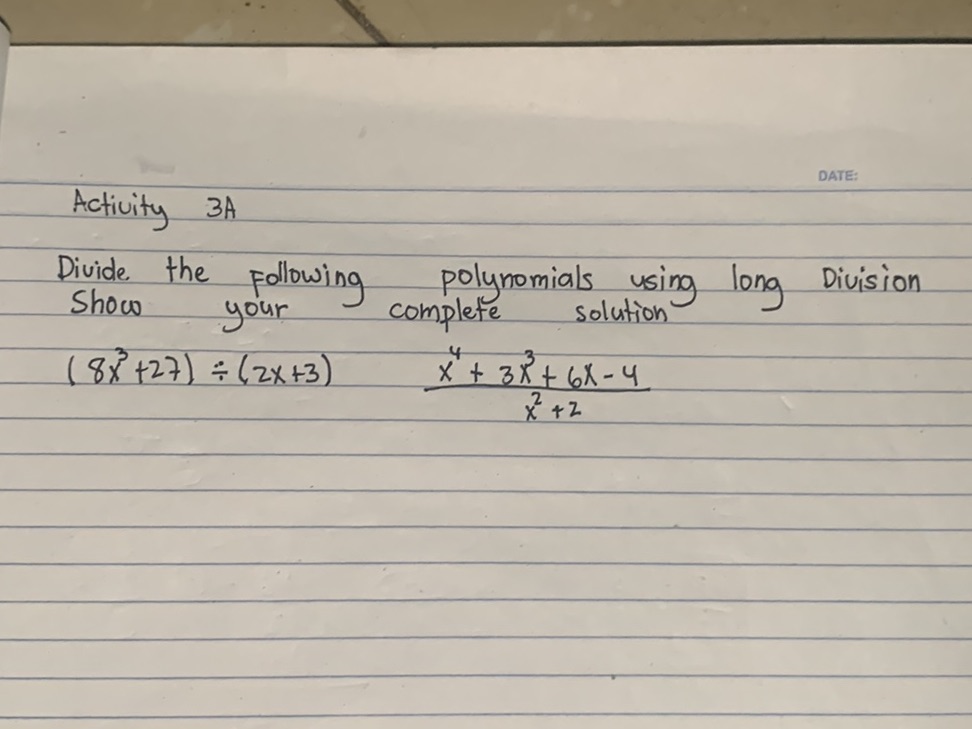 DATE:
Activity 3A
Divide the Following polynomials using long Division
Show your complete solution
(8x³+27) ÷ (2x+3)
x⁴ + 3x³ + 6x - 4
x² + 2